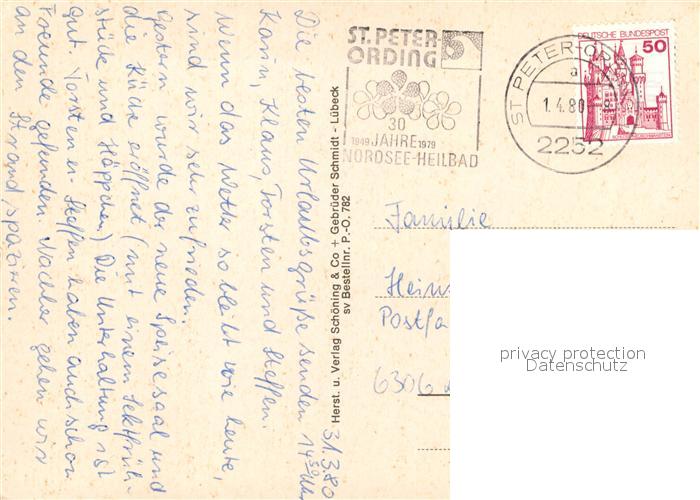 31.3.80
14 50 Uhr
Die besten Urlaubsgrüße senden
Karin, Klaus, Torsten und Steffen.
Wenn das Wetter so bleibt wie heute,
sind wir sehr zufrieden.
Gestern wurde der neue Speisesaal und
die Küche eröffnet (mit einem Sektfrüh-
stück und Häppchen) Die Unterhaltung ist
gut. Torsten u. Steffen haben auch schon
Freunde gefunden. Nachher gehen wir
an den Strand spazieren.
Herst. u. Verlag Schöning & Co + Gebrüder Schmidt - Lübeck
sv Bestellnr. P.-O. 782
ST. PETER-
ORDING
30
1949 JAHRE 1979
NORDSEE-HEILBAD
ST PETER-ORD
a
1.4.80-8
2252
DEUTSCHE BUNDESPOST
50
Familie
Hein
Postfa
6306
privacy protection
Datenschutz